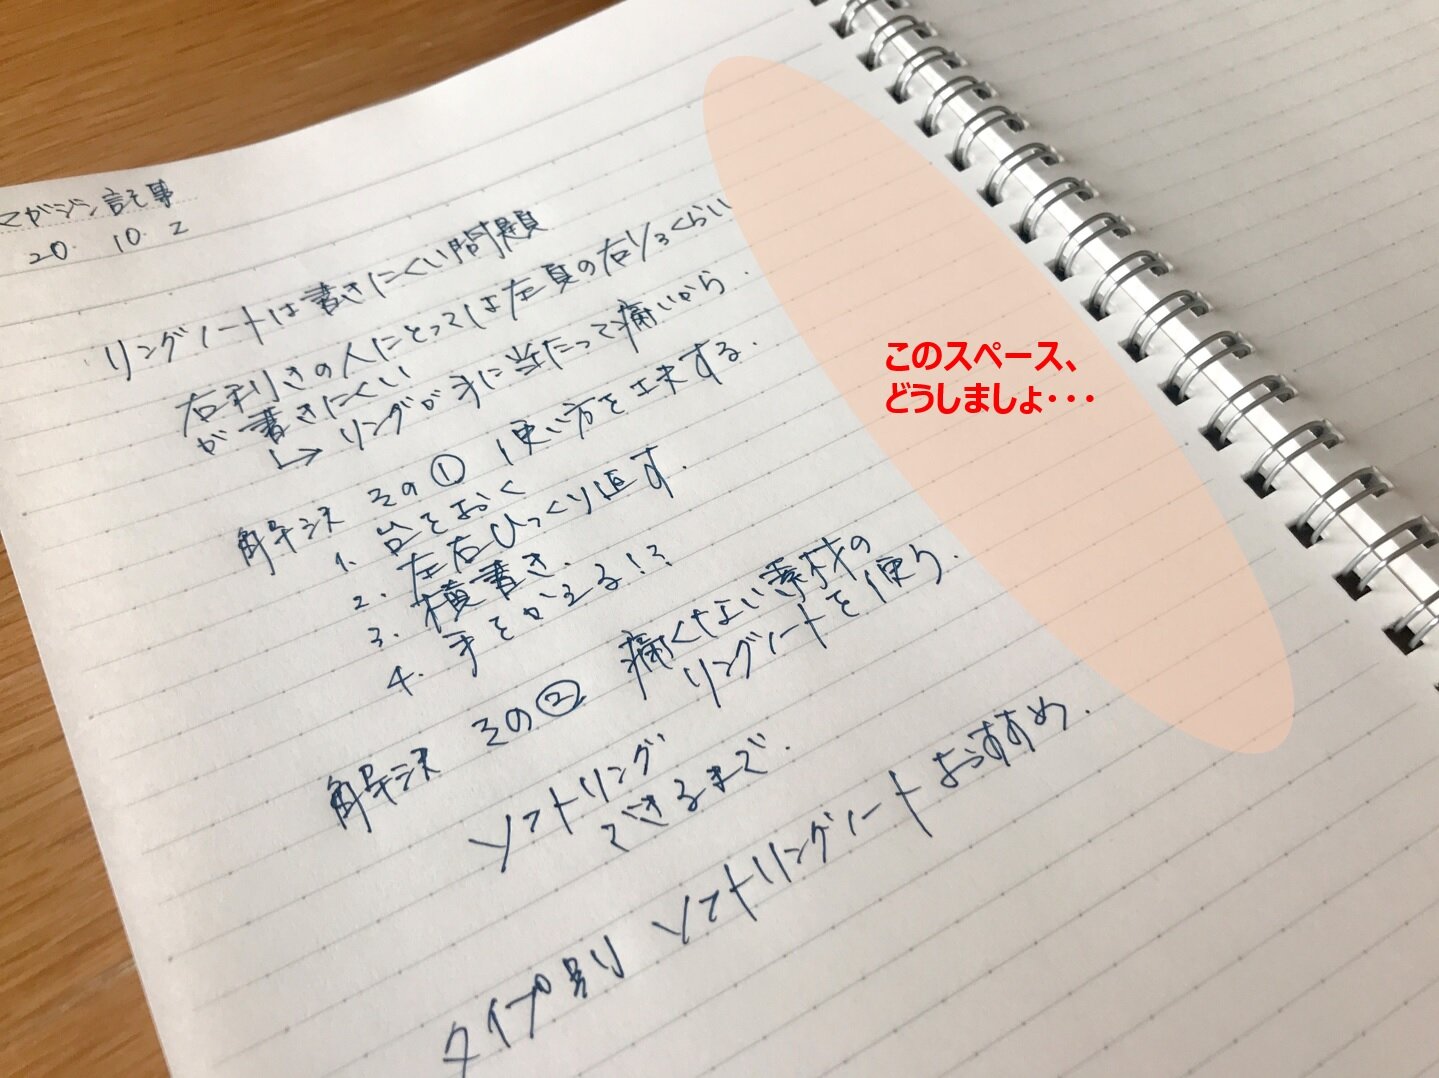 マガジン記事
20. 10. 2
リングノートは書きにくい問題
右利きの人にとっては左頁の右1/3くらい
が書きにくい
→ リングが手に当たって痛いから.
解決 その① 使い方を工夫する.
1. 台をおく
2. 左右ひっくり返す.
3. 横書き.
4. 手をかえる!?
解決 その② 痛くない素材の
リングノートを使う.
ソフトリング
できるまで.
タイプ別 ソフトリングノートおすすめ.
このスペース、
どうしましょ・・・